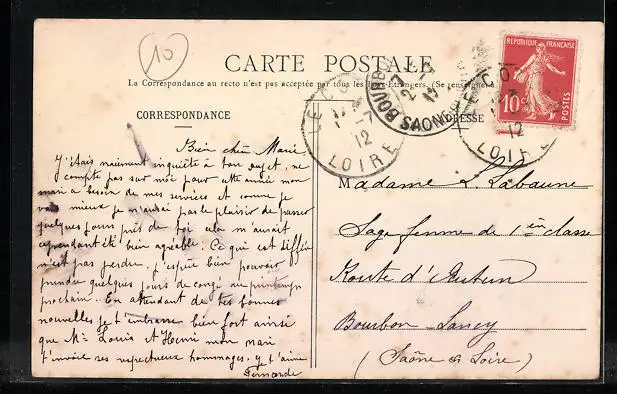 10
CARTE POSTALE
La Correspondance au recto n'est pas acceptée par tous les Pays Etrangers. (Se renseigner à
REPUBLIQUE FRANÇAISE
10c
POSTES
CORRESPONDANCE
ADRESSE
LE
LOIRE
12
BOURB
SAON
12
LOIRE
Bien chère Marie
J'étais vraiment inquiète à ton sujet, ne
compte pas sur moi pour cette année mon
mari a besoin de mes services et comme je
vais mieux je n'aurai pas le plaisir de passer
quelques jours près de toi cela m'aurait
cependant été bien agréable. Ce qui est différé
n'est pas perdu, j'espère bien pouvoir
prendre quelques jours de congé au printemps
prochain. En attendant de tes bonnes
nouvelles je t'embrasse bien fort ainsi
que Mr Louis et Henri mon mari
t'envoie ses respectueux hommages.
Fernande
Madame L. Labaune
Sage femme de 1ère classe
Route d'Autun
Bourbon Lancy
(Saône & Loire)